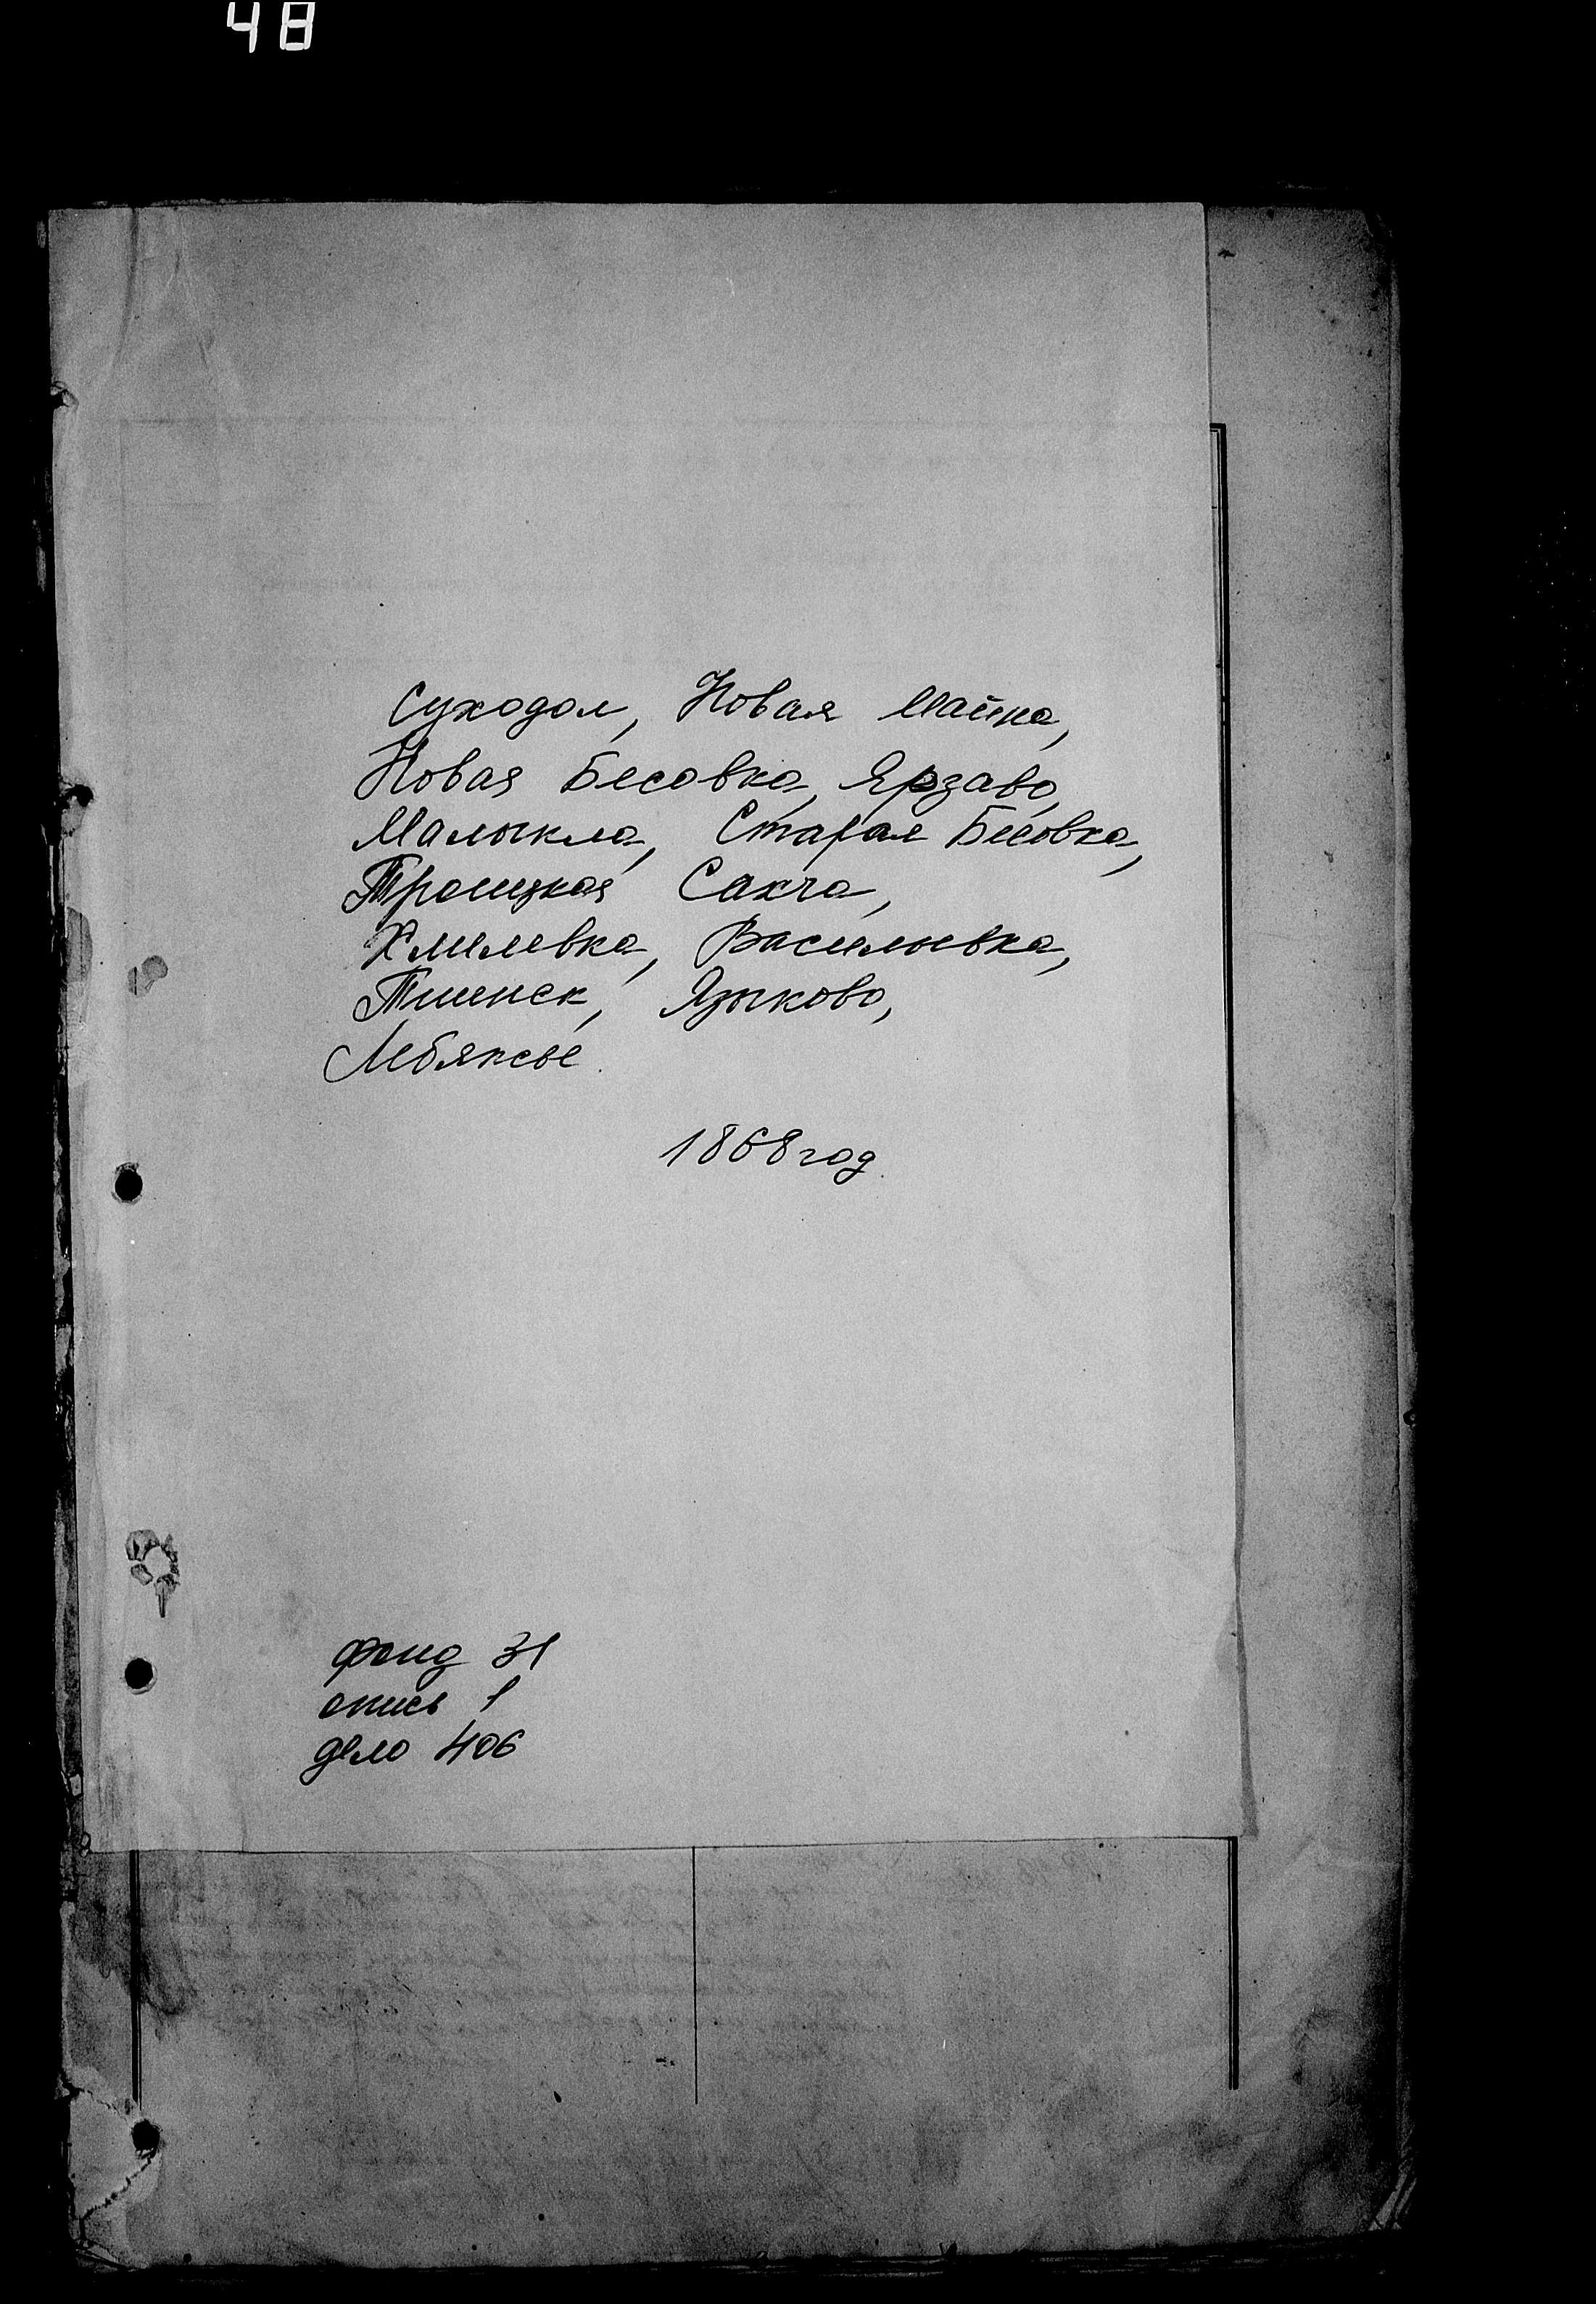 48
Суходол, Новая Майна,
Новая Бесовка, Ерзаво,
Малыкла, Старая Бесовка,
Троицкая Сакча,
Хмелевка, Васильевка,
Тиинск, Языково,
Лебяжье.
1868 год.
фонд 31
опись 1
дело 406